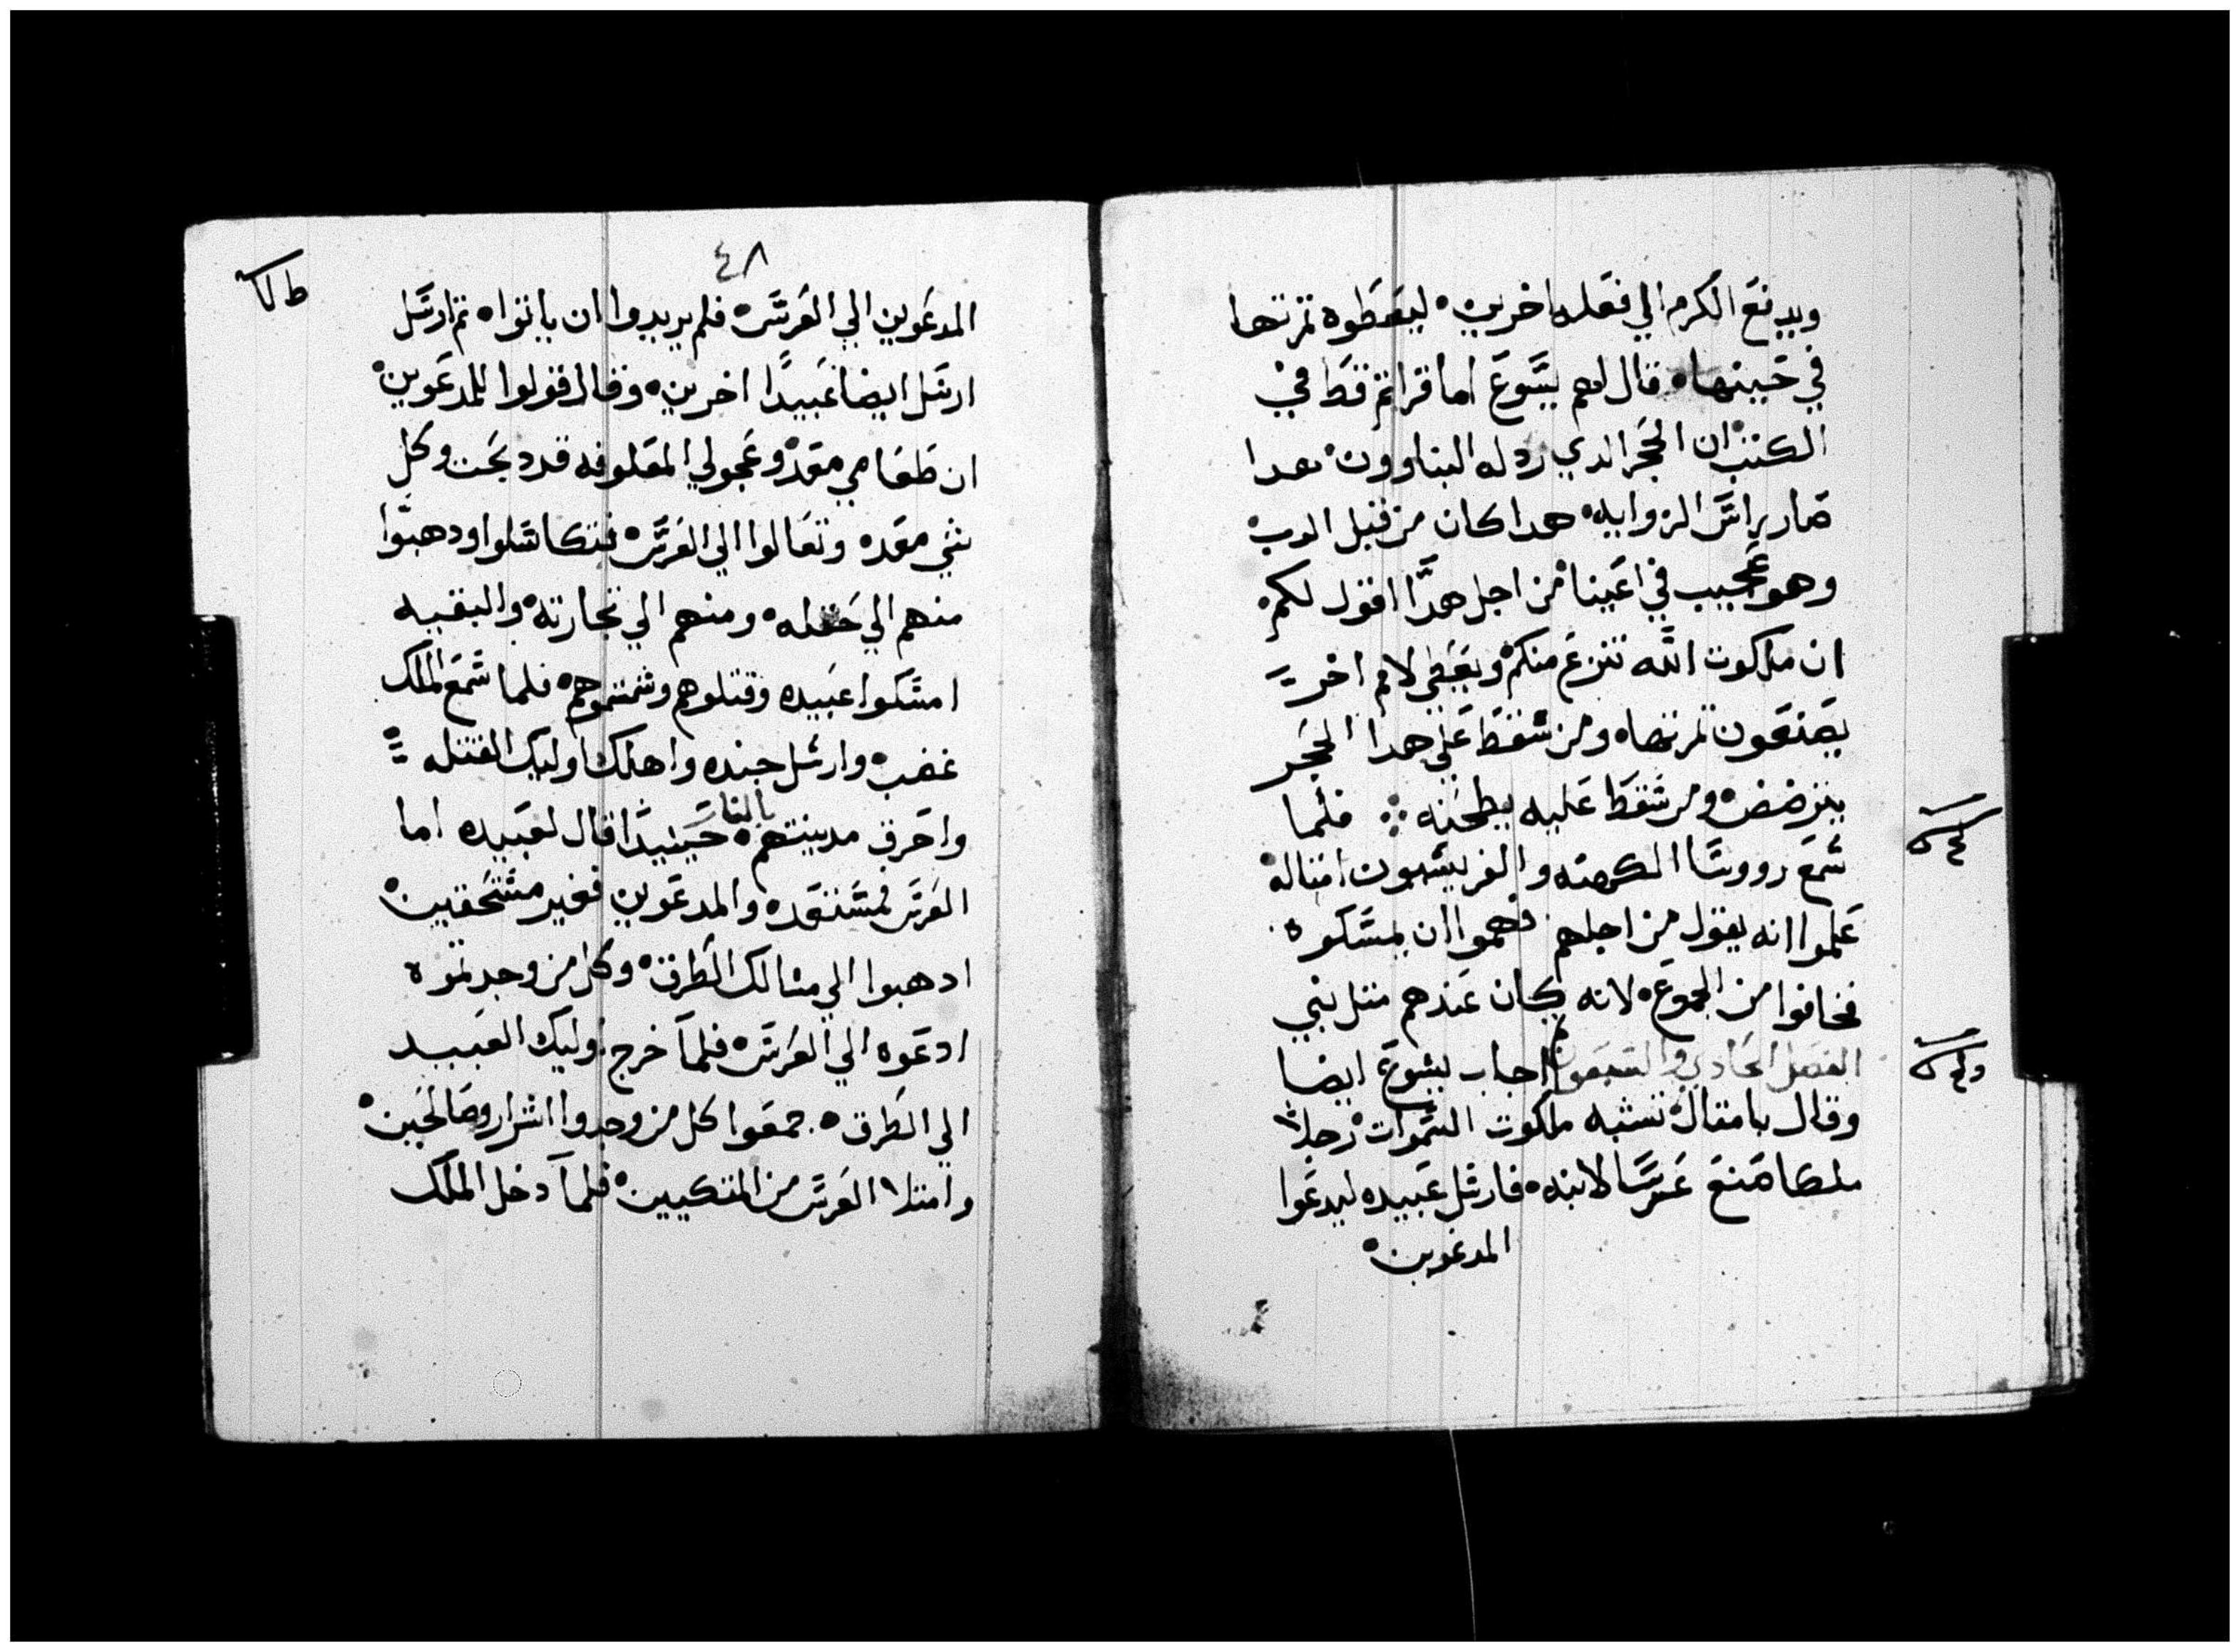 ويدفع الكرم الي فعله اخرين ليعطوه تمرتها
في حينها قال لهم يسوع اما قراتم قط في
الكتب ان الحجر الدي ردله البناوون هدا
صار براس الزوايه هدا كان من قبل الرب
وهو عجيب في اعيننا من اجل هدا اقول لكم
ان ملكوت الله تنزع منكم ويعطي لامم اخر
يصنعون تمرتها ومن سقط علي هدا الحجر
يترضض ومن سقط عليه يطحنه فلما
سمع رووسا الكهنه والفريسيون امتاله
علموا انه يقول من اجلهم فهموا ان يمسكوه
فخافوا من الجموع لانه كان عندهم متل نبي
الفصل الحادي والسبعون اجاب يسوع ايضا
وقال بامتال تشبه ملكوت السموات رجلا
ملكا صنع عرسا لابنه فارسل عبيده ليدعوا
المدعوين
٤٨
المدعوين الي العرس فلم يريدوا ان ياتوا تم ارسل
ارسل ايضا عبيدا اخرين وقال قولوا للمدعوين
ان طعامي معد وعجولي المعلوفه قد دبحت وكل
شي معد وتعالوا الي العرس فتكاسلوا ودهبوا
منهم الي حقله ومنهم الي تجارته والبقيه
امسكوا عبيده وقتلوهم وشتموهم فلما سمع الملك
غضب وارسل جنده واهلك اوليك القتله
واحرق مدينتهم بالنار حينيدا قال لعبيده اما
العرس فمستعد والمدعوين فغير مستحقين
ادهبوا الي مسالك الطرق وكل من وجدتموه
ادعوه الي العرس فلما خرج اوليك العبيد
الي الطرق جمعوا كل من وجدوا اشرار وصالحين
وامتلا العرس من المتكيين فلما دخل الملك